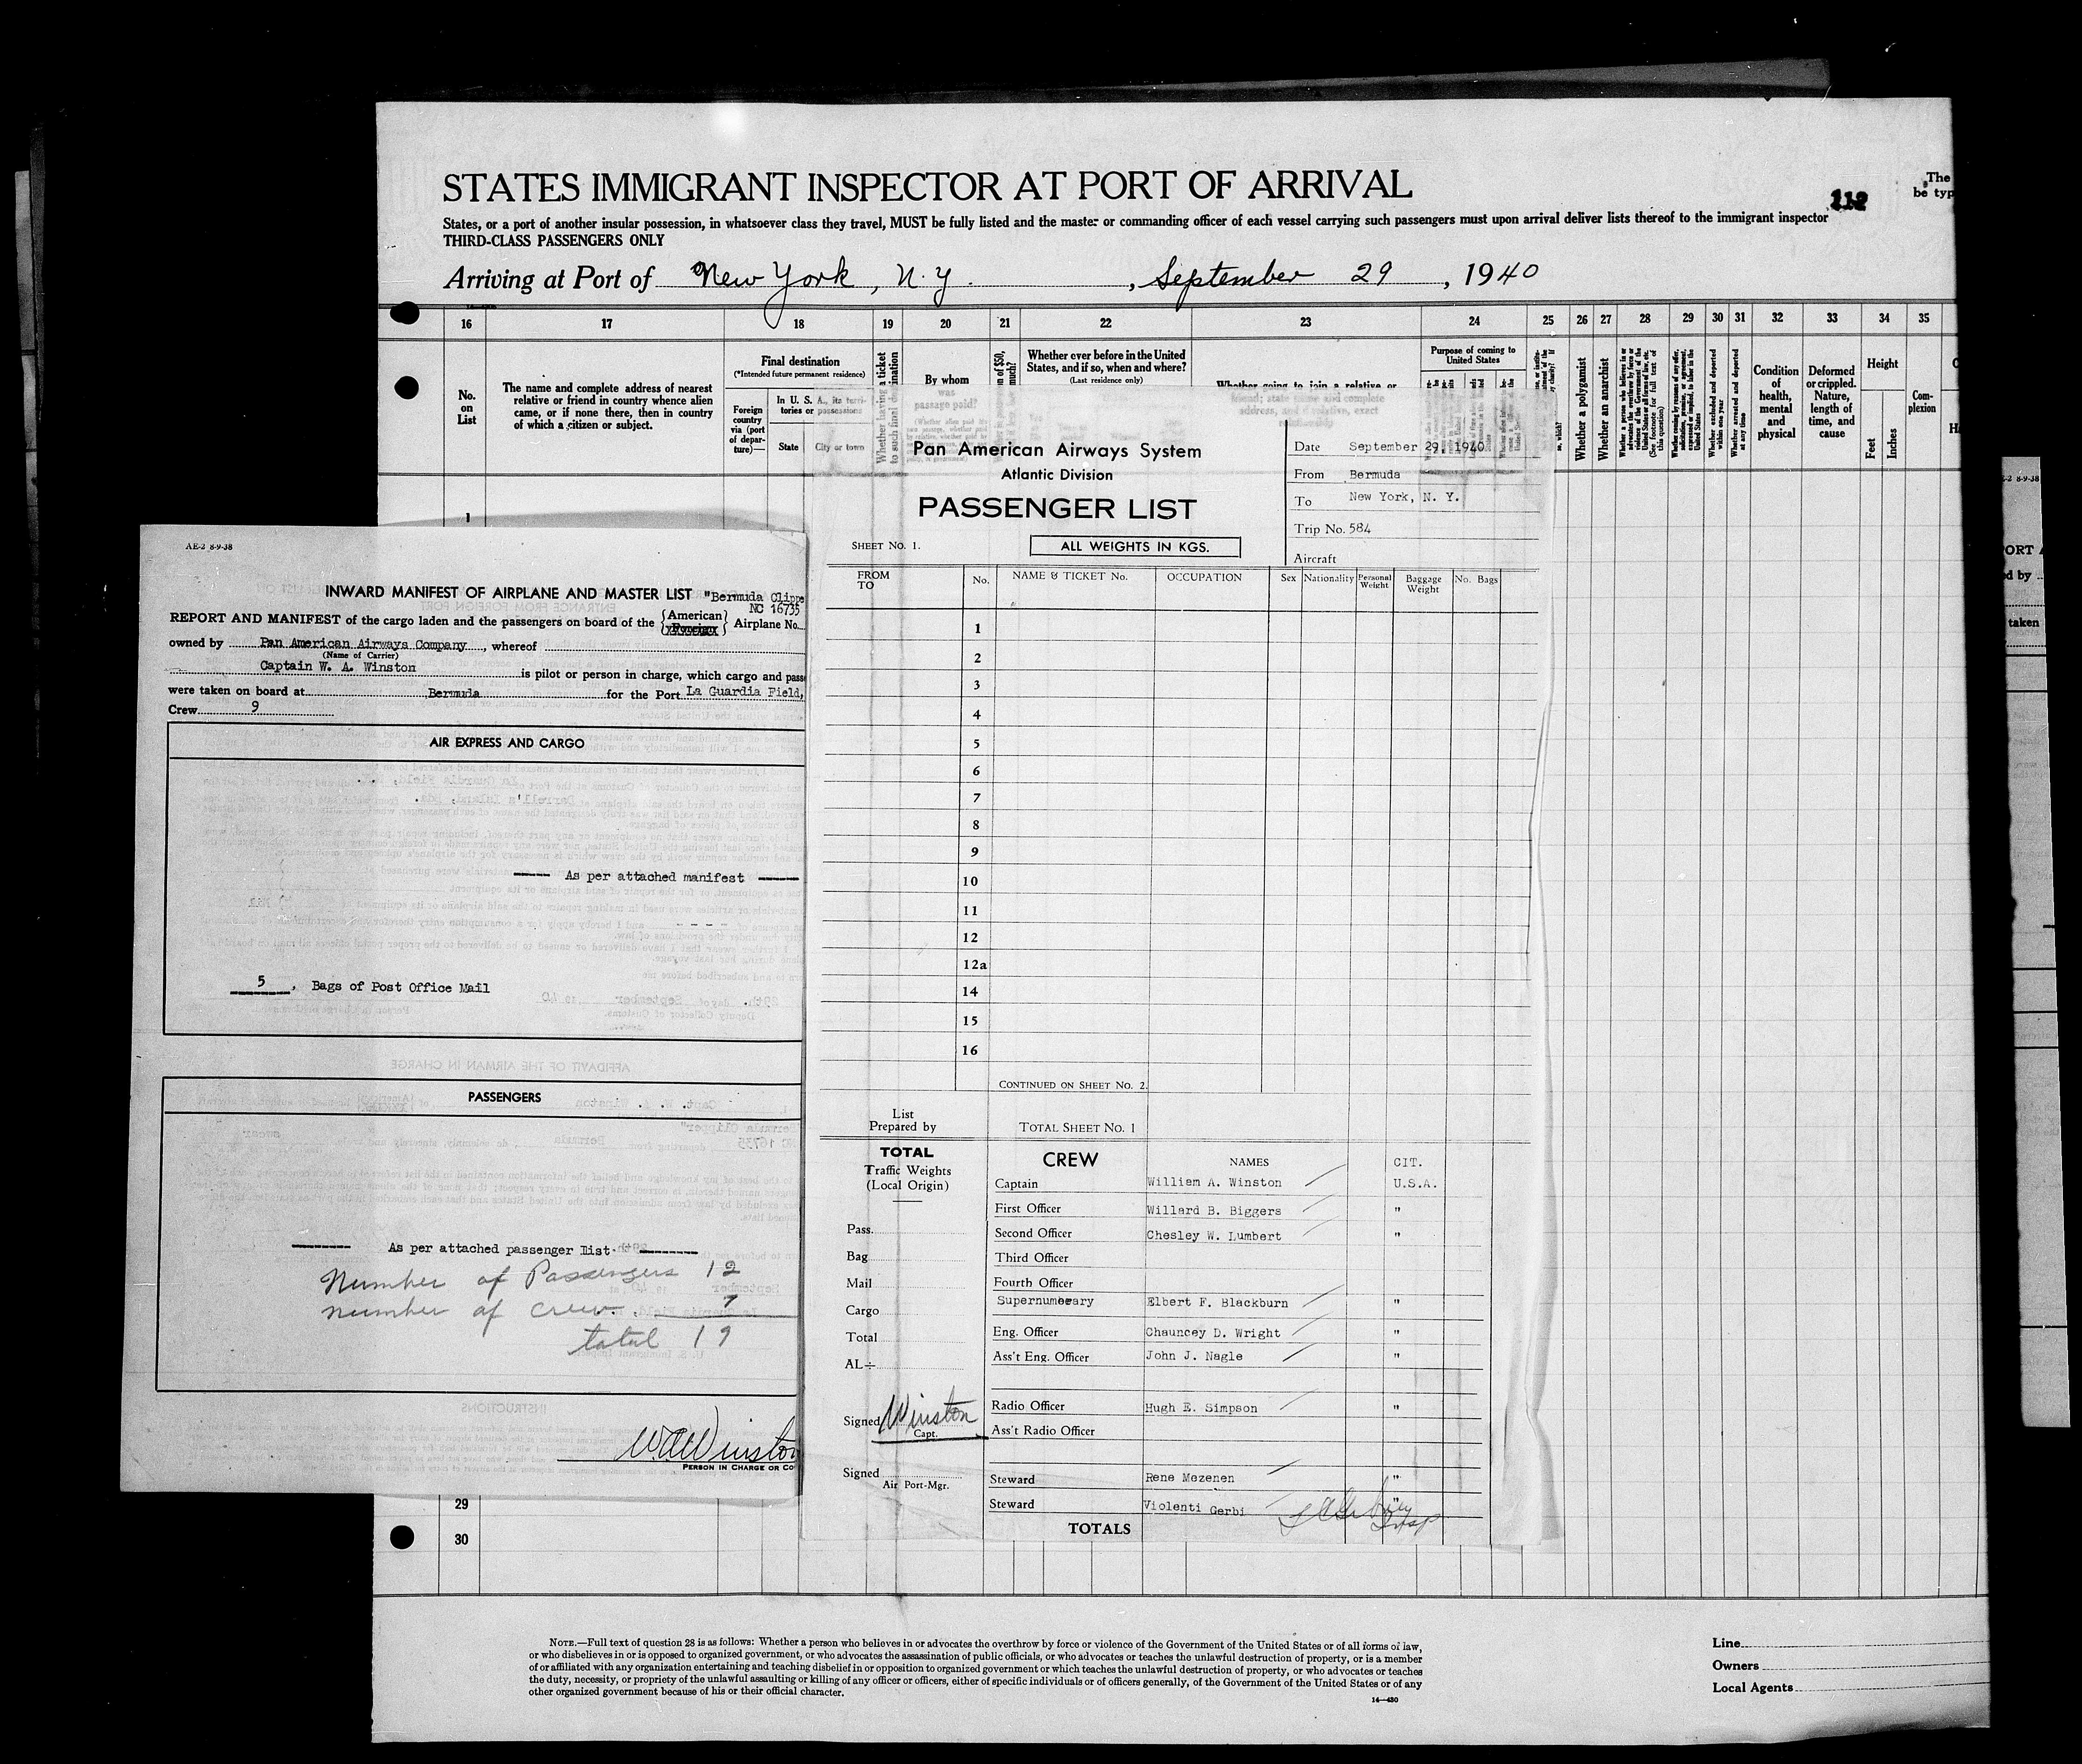 STATES IMMIGRANT INSPECTOR AT PORT OF ARRIVAL
112
The
be typ
States, or a port of another insular possession, in whatsoever class they travel, MUST be fully listed and the master or commanding officer of each vessel carrying such passengers must upon arrival deliver lists thereof to the immigrant inspector
THIRD-CLASS PASSENGERS ONLY
Arriving at Port of New York, N.Y., September 29, 1940
16 17 18 19 20 21 22 23 24 25 26 27 28 29 30 31 32 33 34 35
No. on List
The name and complete address of nearest
relative or friend in country whence alien
came, or if none there, then in country
of which a citizen or subject.
Final destination
(*Intended future permanent residence)
Foreign country via (port of departure)—
In U. S. A., its territories or possessions
State
City or town
Whether having a ticket to such final destination
By whom was passage paid?
Whether ever before in the United
States, and if so, when and where?
(Last residence only)
Whether going to join a relative or
friend; state name and complete
address, and if relative, exact
relationship
Purpose of coming to
United States
Whether a polygamist
Whether an anarchist
Whether excluded and deported within one year
Whether arrested and deported at any time
Condition of health, mental and physical
Deformed or crippled. Nature, length of time, and cause
Height
Feet
Inches
Com-
plexion
1
AE-2 8-9-38
INWARD MANIFEST OF AIRPLANE AND MASTER LIST "Bermuda Clippe
NC 16735
REPORT AND MANIFEST of the cargo laden and the passengers on board of the {American Foreign} Airplane No.
owned by Pan American Airways Company, whereof
(Name of Carrier)
Captain W. A. Winston is pilot or person in charge, which cargo and pass
were taken on board at Bermuda for the Port La Guardia Field,
Crew 9
AIR EXPRESS AND CARGO
As per attached manifest
5, Bags of Post Office Mail
PASSENGERS
As per attached passenger list
Number of Passengers 12
number of crew. 7
total 19
WAWinston
PERSON IN CHARGE OR CO
Pan American Airways System
Atlantic Division
PASSENGER LIST
SHEET NO. 1.
ALL WEIGHTS IN KGS.
Date September 29, 1940
From Bermuda
To New York, N. Y.
Trip No. 584
Aircraft
FROM TO No. NAME & TICKET No. OCCUPATION Sex Nationality Personal Weight Baggage Weight No. Bags
1
2
3
4
5
6
7
8
9
10
11
12
12a
14
15
16
CONTINUED ON SHEET NO. 2.
List
Prepared by
TOTAL SHEET NO. 1
TOTAL
Traffic Weights
(Local Origin)
Pass.
Bag
Mail
Cargo
Total
AL÷
Signed Winston
Capt.
Signed
Air Port-Mgr.
CREW NAMES CIT.
Captain William A. Winston U.S.A.
First Officer Willard B. Biggers "
Second Officer Chesley W. Lumbert "
Third Officer
Fourth Officer
Supernumerary Elbert F. Blackburn "
Eng. Officer Chauncey D. Wright "
Ass't Eng. Officer John J. Nagle "
Radio Officer Hugh E. Simpson "
Ass't Radio Officer
Steward Rene Mezenen "
Steward Violenti Gerbi "
Insp
TOTALS
29
30
NOTE.—Full text of question 28 is as follows: Whether a person who believes in or advocates the overthrow by force or violence of the Government of the United States or of all forms of law,
or who disbelieves in or is opposed to organized government, or who advocates the assassination of public officials, or who advocates or teaches the unlawful destruction of property, or is a member
of or affiliated with any organization entertaining and teaching disbelief in or opposition to organized government or which teaches the unlawful destruction of property, or who advocates or teaches
the duty, necessity, or propriety of the unlawful assaulting or killing of any officer or officers, either of specific individuals or of officers generally, of the Government of the United States or of any
other organized government because of his or their official character.
14—430
Line
Owners
Local Agents
-2 8-9-38
PORT A
d by
taken